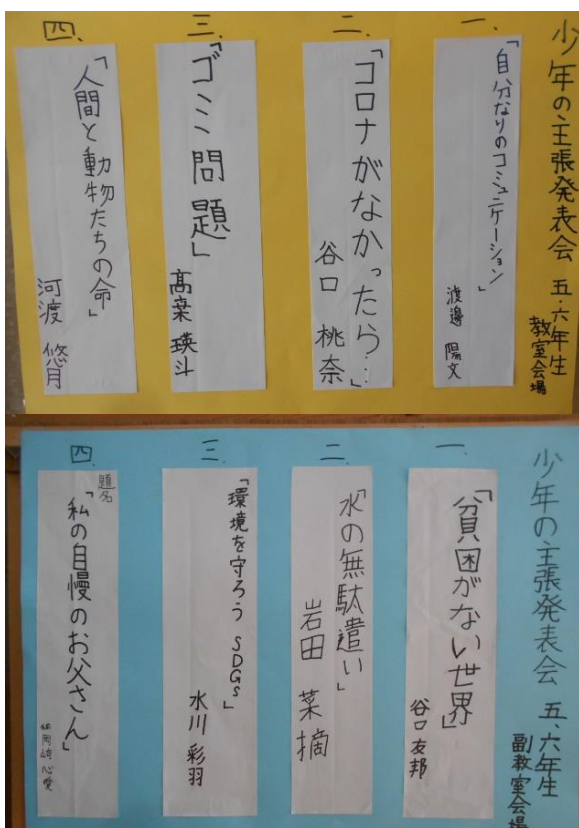 少年の主張発表会 五・六年生
教室会場
一、
「自分なりのコミュニケーション」
渡邉 陽文
二、
「コロナがなかったら…」
谷口 桃奈
三、
「ゴミ問題」
髙桒 瑛斗
四、
「人間と動物たちの命」
河渡 悠月
少年の主張発表会 五、六年生
副教室会場
一、
「貧困がない世界」
谷口 友邦
二、
「水の無駄遣い」
岩田 菜摘
三、
「環境を守ろう SDGs」
水川 彩羽
四、
題名
「私の自慢のお父さん」
岡崎 心愛